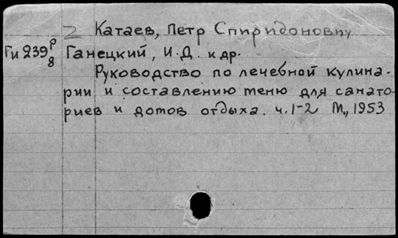 2 Катаев, Петр Спиридонович
Ги 239 р/8 Ганецкий, И.Д. и др.
Руководство по лечебной кулина-
рии и составлению меню для санато-
риев и домов отдыха. ч. 1-2 М., 1953